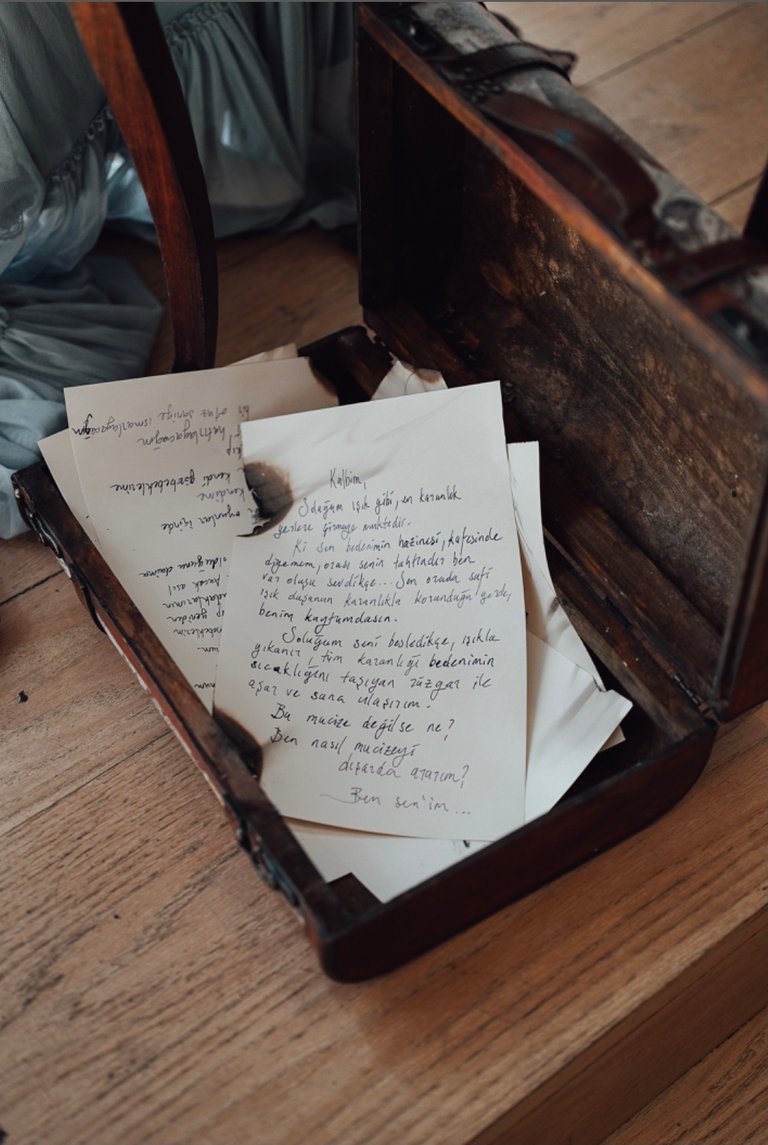 Kalbim,
Soluğum ışık gibi, en karanlık
yerlere girmeye muktedir.
Ki sen bedenimin hazinesi, kafesinde
diyemem, orası senin tahtındır ben
var oluşu sevdikçe... Sen orada safi
ışık duşunun karanlıkla korunduğu yerde,
benim kaytumdasın.
Soluğum seni besledikçe, ışıkla
yıkanır, tüm karanlığı bedenimin
sıcaklığını taşıyan rüzgar ile
aşar ve sana ulaşırım.
Bu mucize değilse ne?
Ben nasıl mucizeyi
dışarda ararım?
Ben sen'im...
bir
otuz saniye ısmarlayacağım
hatırlayacağım
kendi gözbebeklerime
kendime
oyunlar içinde
olduğunu daima
Ancak asıl
yeniden